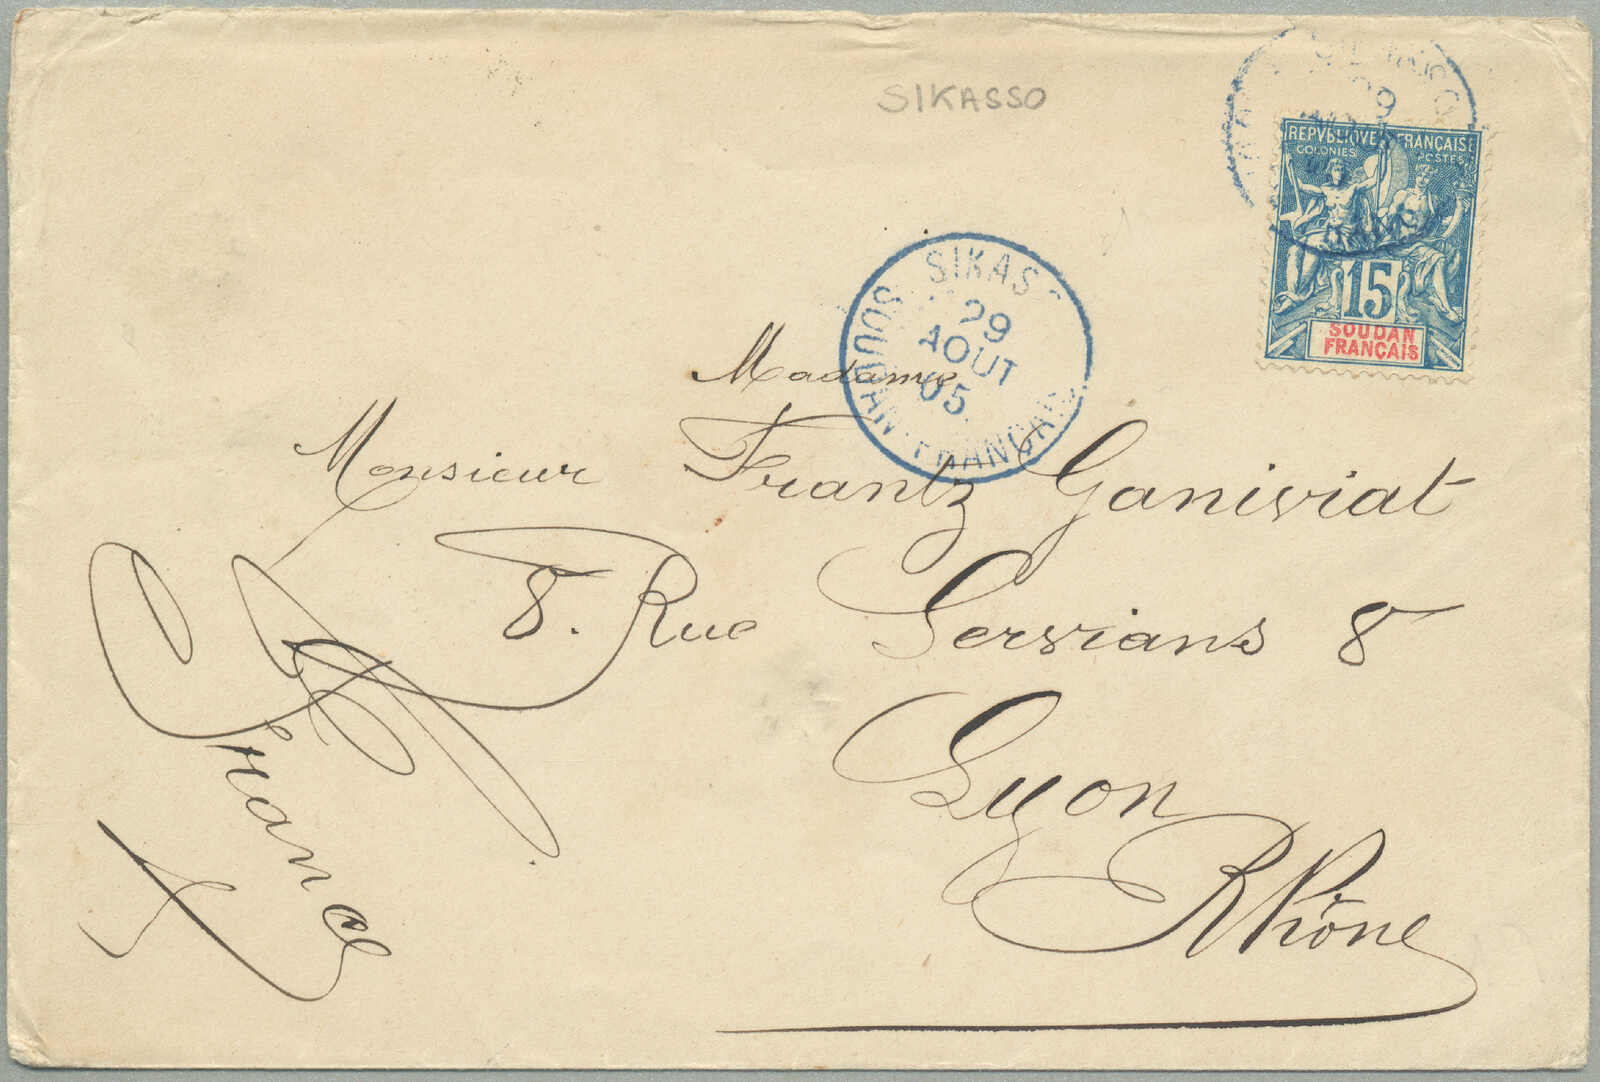 SIKASSO
REPVBLIQVE FRANÇAISE
COLONIES POSTES
15
SOUDAN
FRANÇAIS
SIKAS
29
AOUT
05
SOUDAN FRANÇAIS
Madame
Monsieur Frantz Ganiviat
8. Rue Servians 8
Lyon
Rhône
France